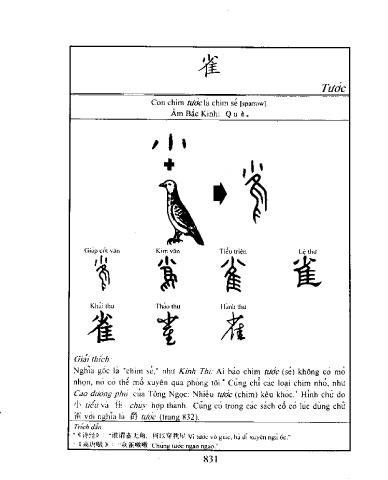 雀
Tước
Con chim tước là chim sẻ [sparrow]
Âm Bắc Kinh: Què.
小
+
Giáp cốt văn Kim văn Tiểu triện Lệ thư
雀
Khải thư Thảo thư Hành thư
雀 雀
Giải thích:
Nghĩa gốc là "chim sẻ," như Kinh Thi: Ai bảo chim tước (sẻ) không có mỏ
nhọn, nó có thể mổ xuyên qua phòng tôi." Cũng chỉ các loại chim nhỏ, như
Cao đường phú của Tống Ngọc: Nhiều tước (chim) kêu khóc." Hình chữ do
小 tiểu và 隹 chùy hợp thành. Cũng có trong các sách cổ có lúc dùng chữ
雀 với nghĩa là 爵 tước (trang 832).
Trích dẫn
"《诗经》: "谁谓雀无角, 何以穿我屋 Vì tước vô giác, hà dĩ xuyên ngã ốc."
Chúng tước ngao ngao."
831